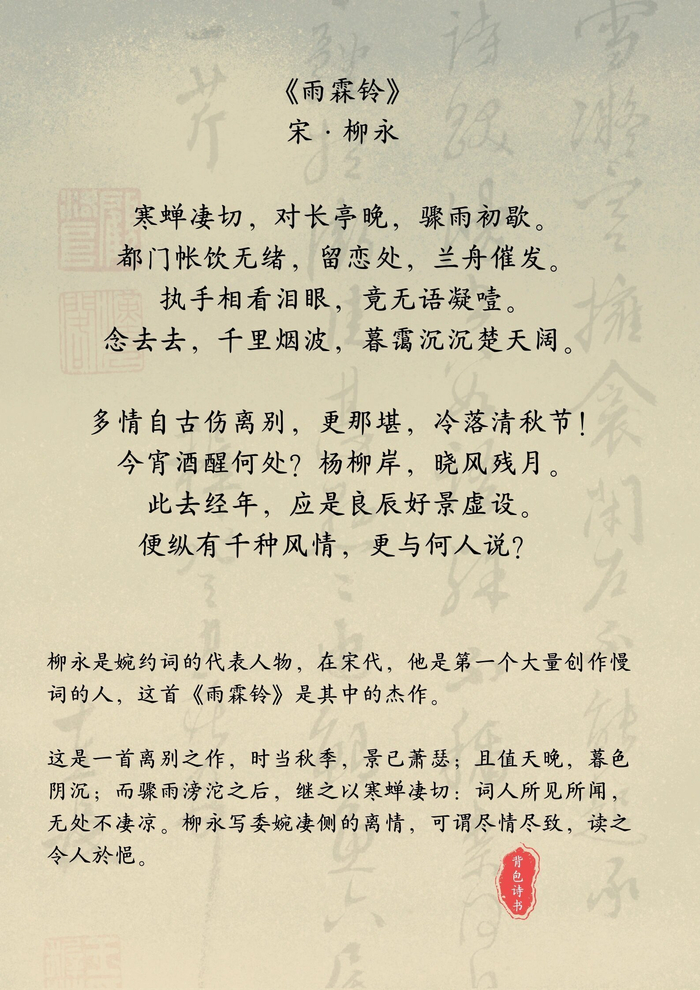 《雨霖铃》
宋·柳永
寒蝉凄切，对长亭晚，骤雨初歇。
都门帐饮无绪，留恋处，兰舟催发。
执手相看泪眼，竟无语凝噎。
念去去，千里烟波，暮霭沉沉楚天阔。
多情自古伤离别，更那堪，冷落清秋节！
今宵酒醒何处？杨柳岸，晓风残月。
此去经年，应是良辰好景虚设。
便纵有千种风情，更与何人说？
柳永是婉约词的代表人物，在宋代，他是第一个大量创作慢
词的人，这首《雨霖铃》是其中的杰作。
这是一首离别之作，时当秋季，景已萧瑟；且值天晚，暮色
阴沉；而骤雨滂沱之后，继之以寒蝉凄切：词人所见所闻，
无处不凄凉。柳永写委婉凄侧的离情，可谓尽情尽致，读之
令人於悒。
背包诗书